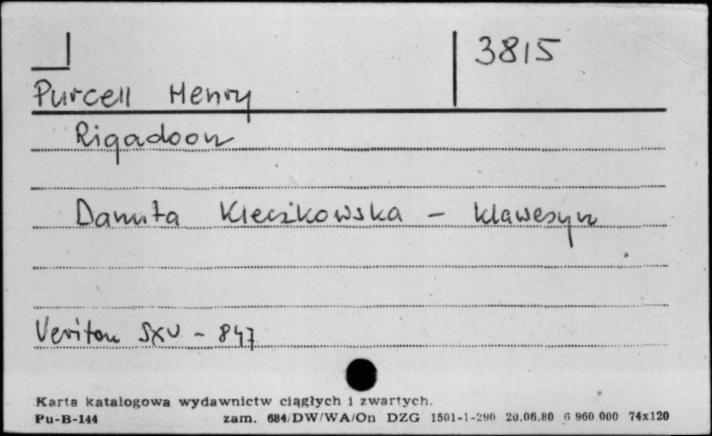 3815
Purcell Henry
Rigadoon
Danuta Kleczkowska - klawesyn
Veriton SXV - 847
Karta katalogowa wydawnictw ciągłych i zwartych.
Pu-B-144 zam. 684/DW/WA/On DZG 1501-1-290 20.06.80 6 960 000 74x120